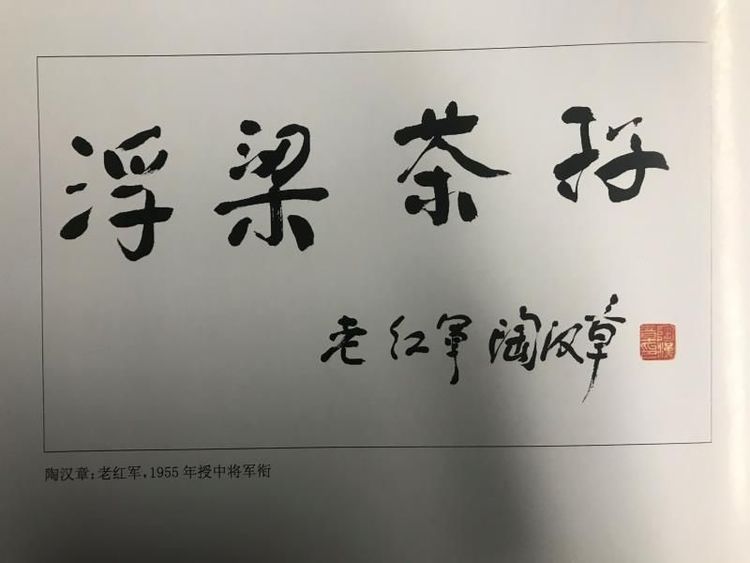 浮梁茶好
老红军 陶汉章
陶汉章:老红军,1955年授中将军衔